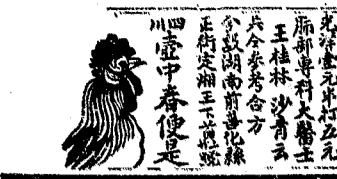 光洋壹元半打五元
肺部專科大醫士
王桂林 沙青云
共仝參考合方
分設湖南前善化縣
正街定湘王下首號
四川
壺中春便是